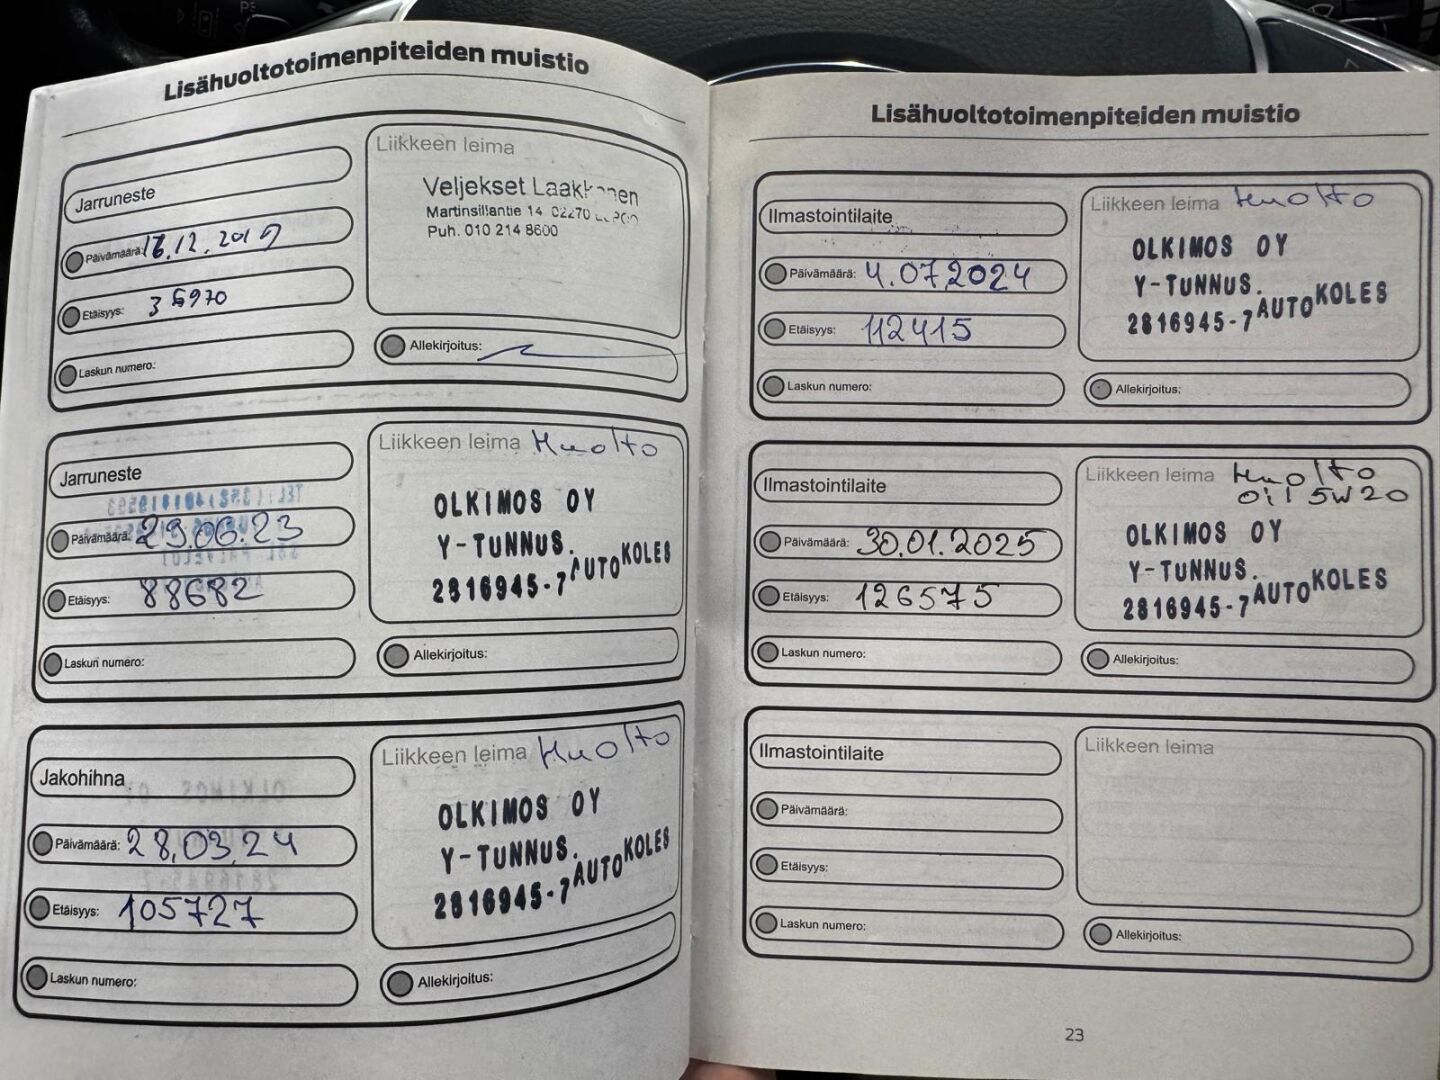 Lisähuoltotoimenpiteiden muistio
Jarruneste
Päivämäärä: 16.12.2019
Etäisyys: 35970
Laskun numero:
Liikkeen leima
Veljekset Laakkonen
Martinsillantie 14 02270
Puh. 010 214 8600
Allekirjoitus:
Jarruneste
Päivämäärä: 29.06.23
Etäisyys: 88682
Laskun numero:
Liikkeen leima Huolto
OLKIMOS OY
Y-TUNNUS.
2816945-7 AUTO KOLES
Allekirjoitus:
Jakohihna
Päivämäärä: 28.03.24
Etäisyys: 105727
Laskun numero:
Liikkeen leima Huolto
OLKIMOS OY
Y-TUNNUS.
2816945-7 AUTO KOLES
Allekirjoitus:
Lisähuoltotoimenpiteiden muistio
Ilmastointilaite
Päivämäärä: 4.07.2024
Etäisyys: 112415
Laskun numero:
Liikkeen leima Huolto
OLKIMOS OY
Y-TUNNUS.
2816945-7 AUTO KOLES
Allekirjoitus:
Ilmastointilaite
Päivämäärä: 30.01.2025
Etäisyys: 126575
Laskun numero:
Liikkeen leima Huolto
Oil 5W20
OLKIMOS OY
Y-TUNNUS.
2816945-7 AUTO KOLES
Allekirjoitus:
Ilmastointilaite
Päivämäärä:
Etäisyys:
Laskun numero:
Liikkeen leima
Allekirjoitus:
23